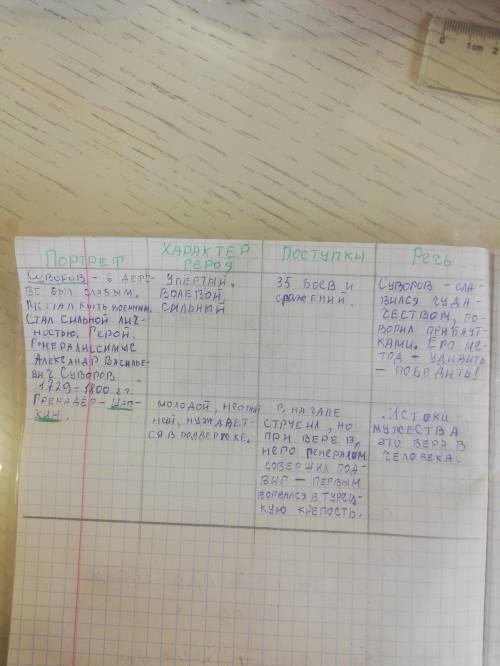 0 1cm 2
Портрет
Характер героя
Поступки
Речь
Суворов - в детс-
ве был слабым.
Мечтал быть военным.
Стал сильной лич-
ностью. Герой.
Генералиссимус
Александр Василье-
вич Суворов
1729-1800 гг.
Упёртый.
Волевой.
Сильный
35 боев и
сражений.
Суворов - сла-
вился чуда-
чеством, го-
ворил прибаут-
ками. Его ме-
тод - удивить
- победить!
Гренадёр -
молодой,
ной, нуждает-
ся в поддержке.
В начале
струсил, но
при вере в
него генералом
совершил под-
виг - первым
ворвался в турец-
кую крепость.
Истоки
мужества
это вера в
человека.